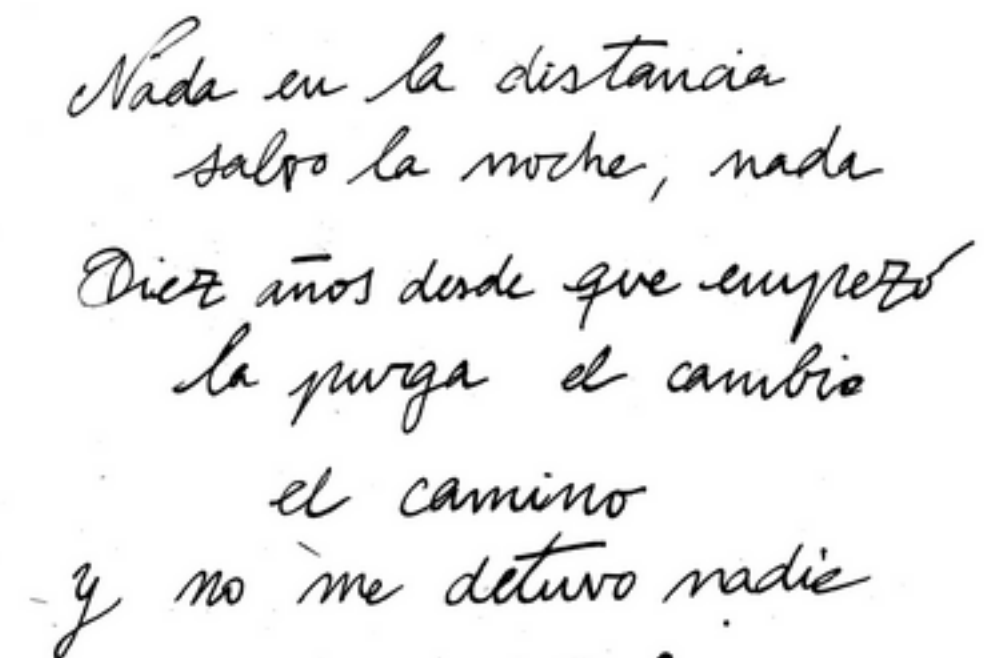 Nada en la distancia
salvo la noche, nada
Diez años desde que empezó
la purga el cambio
el camino
y no me detuvo nadie